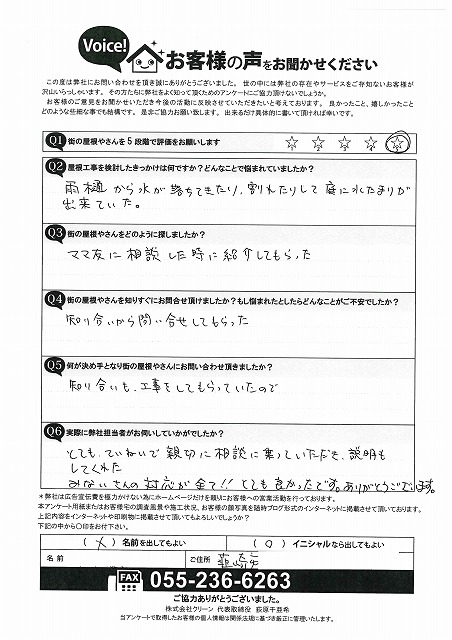 Voice!
お客様の声をお聞かせください
この度は弊社にお問い合わせを頂き誠にありがとうございました。世の中には弊社の存在やサービスをご存知ないお客様が
沢山いらっしゃいます。その方たちに弊社をよく知って頂くためのアンケートにご協力頂けないでしょうか。
お客様のご意見をお聞かせいただき今後の活動に反映させていただきたいと考えております。良かったこと、嬉しかったこと
どのような些細な事でも結構です。是非ご協力お願い致します。出来るだけ具体的に書いて頂ければ幸いです。
Q1 街の屋根やさんを5段階で評価をお願いします ☆ ☆ ☆ ☆ ☆
Q2 屋根工事を検討したきっかけは何ですか?どんなことで悩まれていましたか?
雨樋から水が落ちてきたり、割れたりして庭に水たまりが
出来ていた。
Q3 街の屋根やさんをどのように探しましたか?
ママ友に相談した時に紹介してもらった
Q4 街の屋根やさんを知りすぐにお問合せ頂けましたか?もし悩まれたとしたらどんなことがご不安でしたか?
知り合いから問い合せしてもらった
Q5 何が決め手となり街の屋根やさんにお問い合わせ頂きましたか?
知り合いも、工事をしてもらっていたので
Q6 実際に弊社担当者がお伺いしていかがでしたか?
とても、ていねいで親切に相談に乗っていただき、説明も
してくれた
みなさんの対応が全て!!とても良かったです。ありがとうございます。
*弊社は広告宣伝費を極力かけない為にホームページだけを頼りにお客様への営業活動を行っております。
本アンケート用紙またはお客様宅の調査風景や施工状況、お客様の顔写真を随時ブログ形式のインターネットに掲載させて頂いております。
上記内容をインターネットや印刷物に掲載させて頂いてもよろしいでしょうか?
下記の中から〇印をお付下さい。
(×)名前を出してもよい (○)イニシャルなら出してもよい
名前 ご住所
FAX 055-236-6263
ご協力ありがとうございました。
株式会社クリーン 代表取締役 荻原千亜希
当アンケートで取得したお客様の個人情報は関係法規に基づき厳正に管理いたします。